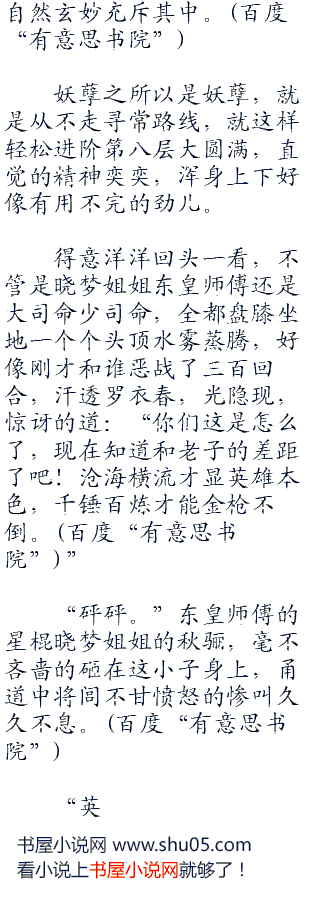 自然玄妙充斥其中。(百度
“有意思书院”)
妖孽之所以是妖孽，就
是从不走寻常路线，就这样
轻松进阶第八层大圆满，直
觉的精神奕奕，浑身上下好
像有用不完的劲儿。
得意洋洋回头一看，不
管是晓梦姐姐东皇师傅还是
大司命少司命，全都盘膝坐
地一个个头顶水雾蒸腾，好
像刚才和谁恶战了三百回
合，汗透罗衣春，光隐现，
惊讶的道：“你们这是怎么
了，现在知道和老子的差距
了吧！沧海横流才显英雄本
色，千锤百炼才能金枪不
倒。(百度“有意思书
院”)”
“砰砰。”东皇师傅的
星棍晓梦姐姐的秋骊，毫不
吝啬的砸在这小子身上，甬
道中将闾不甘愤怒的惨叫久
久不息。(百度“有意思书
院”)
“英
书屋小说网 www.shu05.com
看小说上书屋小说网就够了！